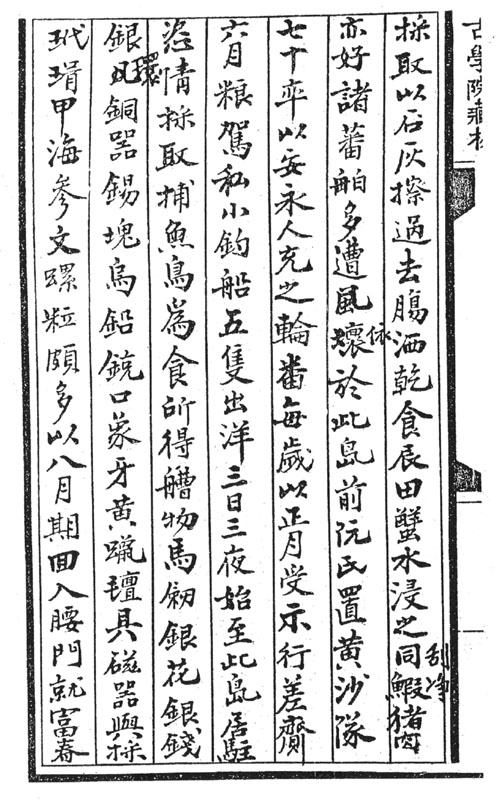 古學院藏本
採取以石灰擦過去腸洒乾食辰田蟹水浸之刮净同鰕猪肉
亦好諸蕃舶多遭風依壞於此島前阮氏置黄沙隊
七十率以安永人充之輪番每歲以正月受示行差齎
六月粮駕私小釣船五隻出洋三日三夜始至此島居駐
恣情採取捕魚鳥爲食所得艚物馬劒銀花銀錢
銀環銅器錫塊烏鉛銃口象牙黄蠟氊具磁器與採
玳瑁甲海參文螺粒頗多以八月期回入腰門就富春